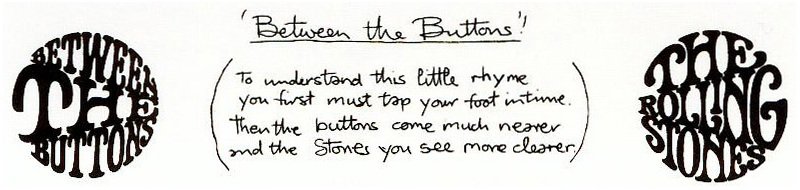 BETWEEN
THE
BUTTONS
'Between the Buttons'!
(To understand this little rhyme
you first must tap your foot in time.
Then the buttons come much nearer
and the Stones you see more clearer.)
THE
ROLLING
STONES